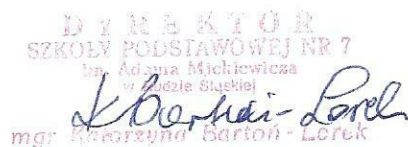 DYREKTOR
SZKOŁY PODSTAWOWEJ NR 7
im. Adama Mickiewicza
w Rudzie Śląskiej
mgr Katarzyna Bartoń - Lorek